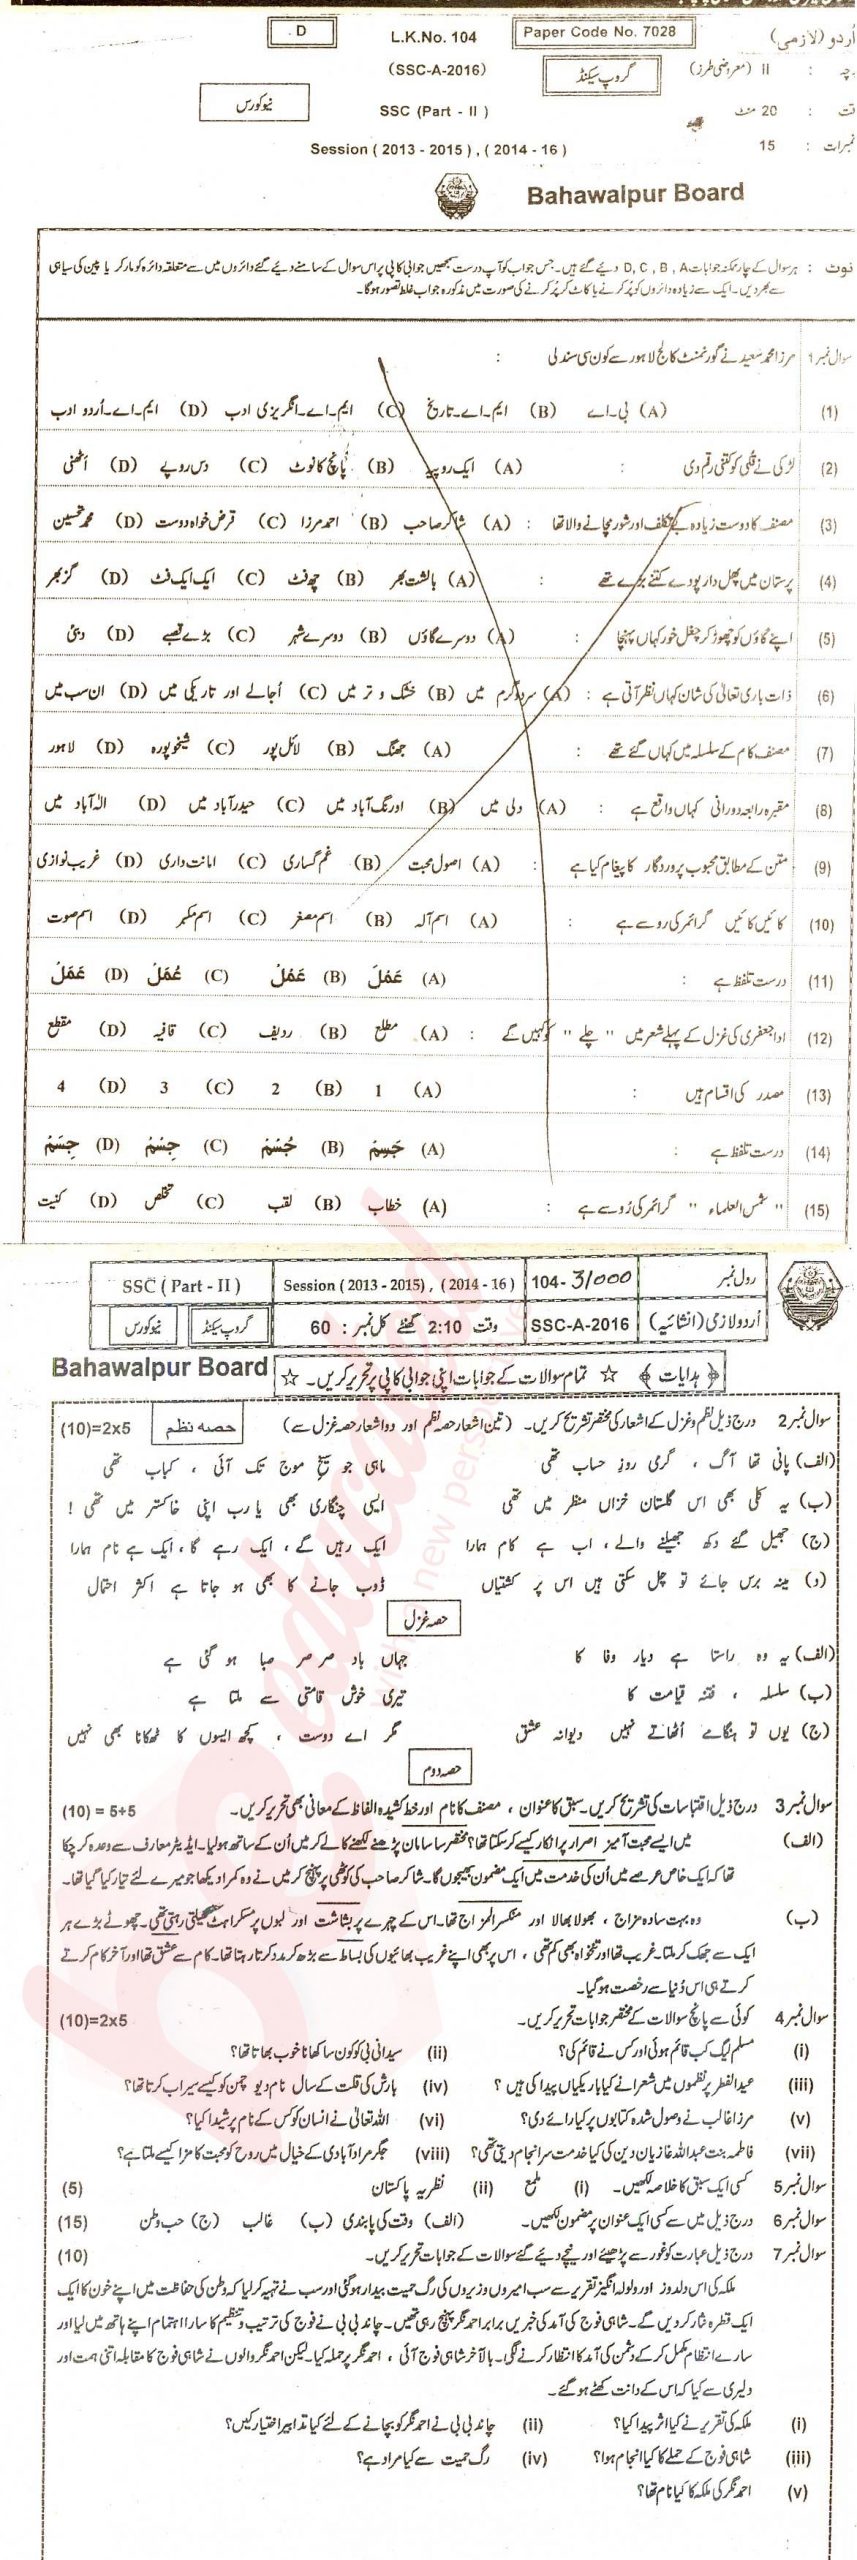 D L.K.No. 104 Paper Code No. 7028 اُردو (لازمی)
(SSC-A-2016) گروپ سیکنڈ II (معروضی طرز) :
نیو کورس SSC (Part - II ) 20 منٹ :
Session ( 2013 - 2015 ) , ( 2014 - 16 ) 15 : نمبرات
Bahawalpur Board
نوٹ : ہر سوال کے چار ممکنہ جوابات D, C , B , A دیئے گئے ہیں۔ جس جواب کو آپ درست سمجھیں جوابی کاپی پر اس سوال کے سامنے دیئے گئے دائروں میں سے متعلقہ دائرہ کو مارکر یا پین کی سیاہی
سے بھر دیں۔ ایک سے زیادہ دائروں کو پُر کرنے یا کاٹ کر پُر کرنے کی صورت میں مذکورہ جواب غلط تصور ہوگا۔
سوال نمبر 1 مرزا محمد سعید نے گورنمنٹ کالج لاہور سے کون سی سند لی :
(1) (A) بی۔اے (B) ایم۔اے۔تاریخ (C) ایم۔اے۔انگریزی ادب (D) ایم۔اے۔اُردو ادب
(2) لڑکی نے قلی کو کتنی رقم دی : (A) ایک روپیہ (B) پانچ کا نوٹ (C) دس روپے (D) اٹھنی
(3) مصنف کا دوست زیادہ بے تکلف اور شور مچانے والا تھا : (A) شاکر صاحب (B) احمد مرزا (C) قرض خواہ دوست (D) محمد تحسین
(4) پرستان میں پھل دار پودے کتنے بڑے تھے : (A) بالشت بھر (B) چھ فٹ (C) ایک ایک فٹ (D) گز بھر
(5) اپنے گاؤں کو چھوڑ کر چغل خور کہاں پہنچا : (A) دوسرے گاؤں (B) دوسرے شہر (C) بڑے قصبے (D) دبئی
(6) ذات باری تعالیٰ کی شان کہاں نظر آتی ہے : (A) سرد و گرم میں (B) خشک و تر میں (C) اُجالے اور تاریکی میں (D) ان سب میں
(7) مصنف کام کے سلسلہ میں کہاں گئے تھے : (A) جھنگ (B) لائل پور (C) شیخوپورہ (D) لاہور
(8) مقبرہ رابعہ دورانی کہاں واقع ہے : (A) دلی میں (B) اورنگ آباد میں (C) حیدرآباد میں (D) الہ آباد میں
(9) متن کے مطابق محبوب پروردگار کا پیغام کیا ہے : (A) اصول محبت (B) غم گساری (C) امانت داری (D) غریب نوازی
(10) کائیں کائیں گرائمر کی رو سے ہے : (A) اسم آلہ (B) اسم مصغر (C) اسم مکبر (D) اسم صوت
(11) درست تلفظ ہے : (A) (B) (C) (D)
(12) ادا جعفری کی غزل کے پہلے شعر میں " چلے " کو کہیں گے : (A) مطلع (B) ردیف (C) قافیہ (D) مقطع
(13) مصدر کی اقسام ہیں : (A) 1 (B) 2 (C) 3 (D) 4
(14) درست تلفظ ہے : (A) (B) (C) (D)
(15) " شمس العلماء " گرائمر کی رُو سے ہے : (A) خطاب (B) لقب (C) تخلص (D) کنیت
SSC ( Part - II ) Session ( 2013 - 2015) , ( 2014 - 16 ) 104-31000 رول نمبر
نیو کورس گروپ سیکنڈ وقت 2:10 گھنٹے کل نمبر : 60 SSC-A-2016 اُردو لازمی (انشائیہ)
Bahawalpur Board ☆ تمام سوالات کے جوابات اپنی جوابی کاپی پر تحریر کریں۔ ☆ ﴿ ہدایات ﴾
سوال نمبر 2 درج ذیل نظم و غزل کے اشعار کی مختصر تشریح کریں۔ (تین اشعار حصہ نظم اور دو اشعار حصہ غزل سے) حصہ نظم (10)=2x5
(الف) پانی تھا آگ ، گرمی روز حساب تھی ماہی جو سیخ موج تک آئی ، کباب تھی
(ب) یہ کلی بھی اس گلستان خزاں منظر میں تھی ایسی چنگاری بھی یا رب اپنی خاکستر میں تھی !
(ج) جھیل گئے دکھ جھیلنے والے ، اب ہے کام ہمارا ایک رہیں گے ، ایک رہے گا ، ایک ہے نام ہمارا
(د) مینہ برس جائے تو چل سکتی ہیں اس پر کشتیاں ڈوب جانے کا بھی ہو جاتا ہے اکثر احتمال
حصہ غزل
(الف) یہ وہ راستا ہے دیار وفا کا جہاں باد صر صر صبا ہو گئی ہے
(ب) سلسلہ ، فتنہ قیامت کا تیری خوش قامتی سے ملتا ہے
(ج) یوں تو ہنگامے اُٹھاتے نہیں دیوانہ عشق مگر اے دوست ، کچھ ایسوں کا ٹھکانا بھی نہیں
حصہ دوم
سوال نمبر 3 درج ذیل اقتباسات کی تشریح کریں۔ سبق کا عنوان ، مصنف کا نام اور خط کشیدہ الفاظ کے معانی بھی تحریر کریں۔ (10) = 5+5
(الف) میں ایسے محبت آمیز اصرار پر انکار کیسے کر سکتا تھا؟ مختصر سا سامان پڑھنے لکھنے کا لے کر میں اُن کے ساتھ ہولیا۔ ایڈیٹر معارف سے وعدہ کر چکا
تھا کہ ایک خاص عرصے میں اُن کی خدمت میں ایک مضمون بھیجوں گا۔ شاکر صاحب کی کوٹھی پر پہنچ کر میں نے وہ کمرا دیکھا جو میرے لئے تیار کیا گیا تھا۔
(ب) وہ بہت سادہ مزاج ، بھولا بھالا اور منکسر المزاج تھا۔ اس کے چہرے پر بشاشت اور لبوں پر مسکراہٹ کھیلتی رہتی تھی۔ چھوٹے بڑے ہر
ایک سے جھک کر ملتا۔ غریب تھا اور تنخواہ بھی کم تھی ، اس پر بھی اپنے غریب بھائیوں کی بساط سے بڑھ کر مدد کرتا رہتا تھا۔ کام سے عشق تھا اور آخر کام کرتے
کرتے ہی اس دُنیا سے رخصت ہوگیا۔
سوال نمبر 4 کوئی سے پانچ سوالات کے مختصر جوابات تحریر کریں۔ (10)=2x5
(i) مسلم لیگ کب قائم ہوئی اور کس نے قائم کی؟ (ii) سیدانی بی کو کون سا کھانا خوب بھاتا تھا؟
(iii) عید الفطر پر نظموں میں شعرا نے کیا باریکیاں پیدا کی ہیں ؟ (iv) بارش کی قلت کے سال نام دیو چمن کو کیسے سیراب کرتا تھا؟
(v) مرزا غالب نے وصول شدہ کتابوں پر کیا رائے دی؟ (vi) اللہ تعالیٰ نے انسان کو کس کے نام پر شیدا کیا؟
(vii) فاطمہ بنت عبداللہ غازیان دین کی کیا خدمت سرانجام دیتی تھی؟ (viii) جگر مراد آبادی کے خیال میں روح کو محبت کا مزا کیسے ملتا ہے؟
سوال نمبر 5 کسی ایک سبق کا خلاصہ لکھیں۔ (i) ملمع (ii) نظریہ پاکستان (5)
سوال نمبر 6 درج ذیل میں سے کسی ایک عنوان پر مضمون لکھیں۔ (الف) وقت کی پابندی (ب) غالب (ج) حب وطن (15)
سوال نمبر 7 درج ذیل عبارت کو غور سے پڑھیئے اور نیچے دیئے گئے سوالات کے جوابات تحریر کریں۔ (10)
ملکہ کی اس ولدوز اور ولولہ انگیز تقریر سے سب امیروں وزیروں کی رگ حمیت بیدار ہوگئی اور سب نے تہیہ کر لیا کہ وطن کی حفاظت میں اپنے خون کا ایک
ایک قطرہ نثار کر دیں گے۔ شاہی فوج کی آمد کی خبریں برابر احمد نگر پہنچ رہی تھیں۔ چاند بی بی نے فوج کی ترتیب و تنظیم کا سارا اہتمام اپنے ہاتھ میں لیا اور
سارے انتظام مکمل کر کے دشمن کی آمد کا انتظار کرنے لگی۔ بالآخر شاہی فوج آئی ، احمد نگر پر حملہ کیا۔ لیکن احمد نگر والوں نے شاہی فوج کا مقابلہ اتنی ہمت اور
دلیری سے کیا کہ اس کے دانت کھٹے ہو گئے۔
(i) ملکہ کی تقریر نے کیا اثر پیدا کیا؟ (ii) چاند بی بی نے احمد نگر کو بچانے کے لئے کیا تدابیر اختیار کیں؟
(iii) شاہی فوج کے حملے کا کیا انجام ہوا؟ (iv) رگ حمیت سے کیا مراد ہے؟
(v) احمد نگر کی ملکہ کا کیا نام تھا؟